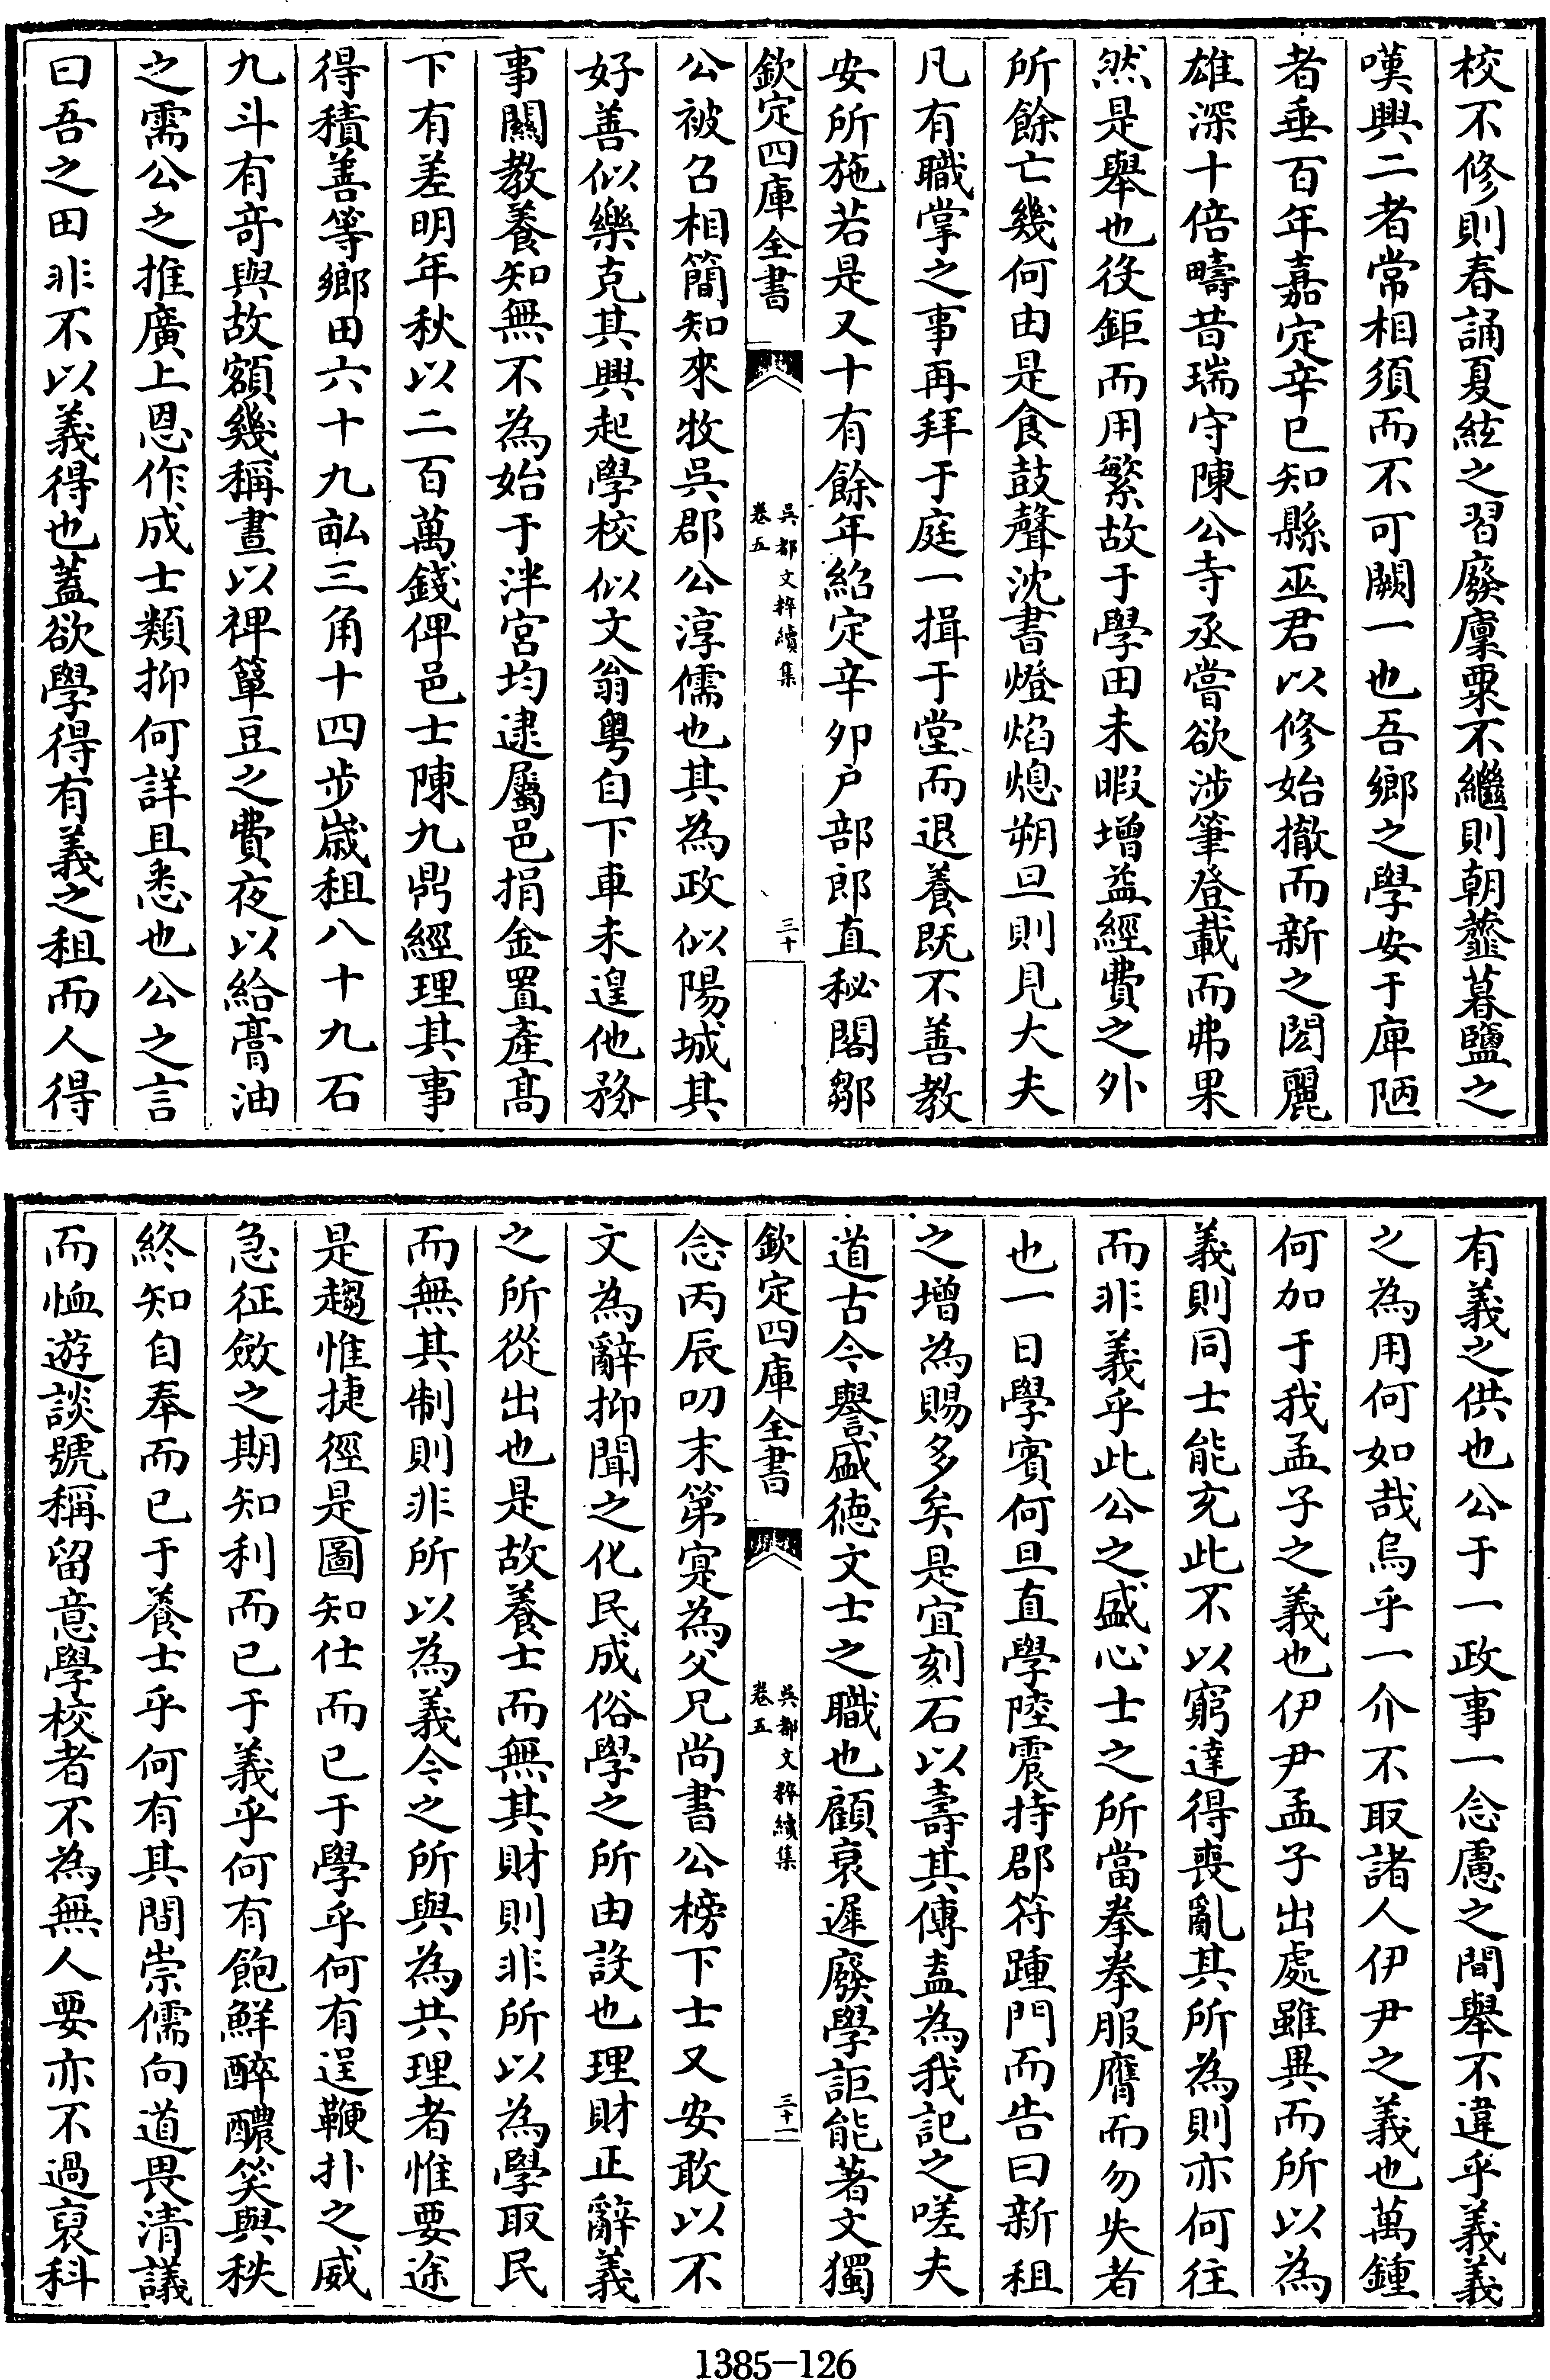 校不修則春誦夏絃之習廢廩粟不繼則朝虀暮鹽之
嘆興二者常相須而不可闕一也吾鄉之學安于庳陋
者垂百年嘉定辛巳知縣巫君以修始撤而新之閎麗
雄深十倍疇昔瑞守陳公寺丞嘗欲涉筆登載而弗果
然是舉也役鉅而用繁故于學田未暇增益經費之外
所餘亡幾何由是食鼓聲沈書燈焰熄朔旦則見大夫
凡有職掌之事再拜于庭一揖于堂而退養既不善教
安所施若是又十有餘年紹定辛卯户部郎直秘閣鄒
欽定四庫全書
吳都文粹續集
卷五
三十
公被召相簡知來牧吳郡公淳儒也其為政似陽城其
好善似樂克其興起學校似文翁粤自下車未遑他務
事關教養知無不為始于泮宮均逮屬邑捐金置產高
下有差明年秋以二百萬錢俾邑士陳九鼎經理其事
得積善等鄉田六十九畝三角十四步歲租八十九石
九斗有奇與故額幾稱晝以裨簞豆之費夜以給膏油
之需公之推廣上恩作成士類抑何詳且悉也公之言
曰吾之田非不以義得也蓋欲學得有義之租而人得
有義之供也公于一政事一念慮之間舉不違乎義義
之為用何如哉烏乎一介不取諸人伊尹之義也萬鍾
何加于我孟子之義也伊尹孟子出處雖異而所以為
義則同士能充此不以窮達得喪亂其所為則亦何往
而非義乎此公之盛心士之所當拳拳服膺而勿失者
也一日學賓何旦直學陸震持郡符踵門而告曰新租
之增為賜多矣是宜刻石以壽其傳盍為我記之嗟夫
道古今譽盛德文士之職也顧衰遲廢學詎能著文獨
欽定四庫全書
吳都文粹續集
卷五
三十一
念丙辰叨末第寔為父兄尚書公榜下士又安敢以不
文為辭抑聞之化民成俗學之所由設也理財正辭義
之所從出也是故養士而無其財則非所以為學取民
而無其制則非所以為義今之所與為共理者惟要途
是趨惟捷徑是圖知仕而已于學乎何有逞鞭扑之威
急征斂之期知利而已于義乎何有飽鮮醉醲笑與秩
終知自奉而已于養士乎何有其間崇儒向道畏清議
而恤遊談號稱留意學校者不為無人要亦不過裒科
1385-126